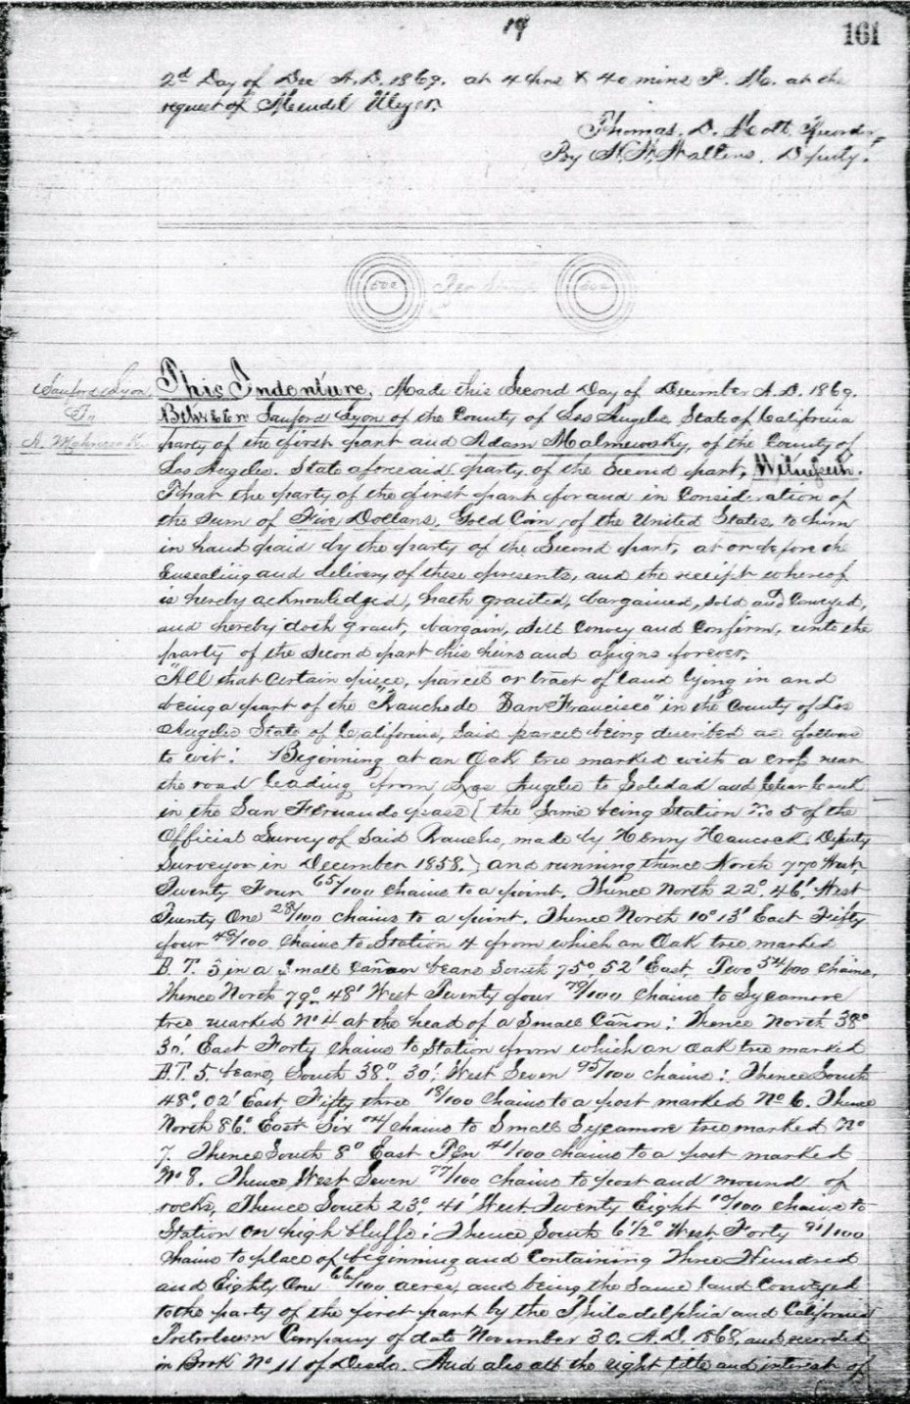 19
161
2d Day of Dec A.D. 1869. at 4 hrs & 40 mins P. M. at the
request of Mendel Meyer.
Thomas. D. Mott. Recorder,
By Walters. Deputy.
500 500
Sanford Lyon
To
A.
This Indenture, Made this Second Day of December A.D. 1869.
Between Sanford Lyon of the County of Los Angeles, State of California
party of the first part and Adam Malmewsky, of the County of
Los Angeles. State aforesaid party of the second part, Witnesseth.
That the party of the first part for and in Consideration of
the sum of Five Dollars, Gold Coin, of the United States, to him
in hand paid by the party of the Second part, at or before the
Ensealing and delivery of these presents, and the receipt whereof
is hereby acknowledged, hath granted, bargained, sold and Conveyed,
and hereby doth grant, bargain, sell Convey and Confirm, unto the
party of the second part his heirs and assigns forever,
"All that Certain piece, parcel or tract of land lying in and
being a part of the "Rancho de San Francisco" in the County of Los
Angeles State of California, Said parcel being described as follows
to wit: Beginning at an Oak tree marked with a cross near
the road leading from Los Angeles to Soledad and
in the San Fernando pass (the Same being Station No 5 of the
Official Survey of Said Rancho, made by Henry Hancock, Deputy
Surveyor in December 1858.) and running thence North 77° West,
Twenty Four 65/100 Chains to a point. Thence North 22° 46' West
Twenty One 28/100 Chains to a point. Thence North 10° 13' East Fifty
four 48/100 Chains to Station 4 from which an Oak tree marked
B. T. 5 in a Small Cañon bears South 75° 52' East Two 54/100 Chains,
thence North 79° 48' West Twenty four 79/100 Chains to Sycamore
tree marked No 4 at the head of a Small Cañon: Thence North 38°
30' East Forty Chains to Station from which an oak tree marked
B.T. 5. bears, South 38° 30' West Seven 95/100 Chains: Thence South
48° 02' East, Fifty three 18/100 Chains to a post marked No 6. Thence
North 86° East Six Chains to Small Sycamore tree marked No
7. Thence South 8° East Ten 41/100 Chains to a post marked
No 8. Thence West Seven 77/100 Chains to post and mound of
rocks, Thence South 23° 41' West Twenty Eight 10/100 Chains to
Station on high bluffs: Thence South 6½° West Forty 91/100
Chains to place of beginning and Containing Three Hundred
and Eighty One 66/100 acres, and being the Same land Conveyed
to the party of the first part by the Philadelphia and California
Petroleum Company of date November 30. A.D. 1868, and recorded
in Book No 11 of Deeds. And also all the right title and interest of